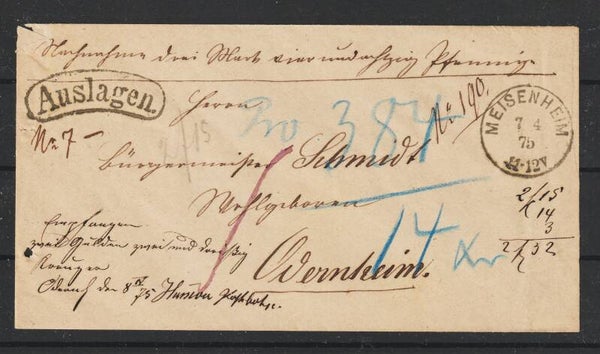 Nachnahme drei Mark vier und achtzig Pfennige
Auslagen.
Herrn
Pro 384
No 190.
MEISENHEIM
7 4
75
11-12V
No 7
2/15
Bürgermeister Schmidt
Wohlgeboren
14 Kr
2/15
14
3
2/32
Empfangen
zwei Gulden zwei und dreißig
Kreuzer
Odernheim.
Odernh den 8/4
75
Postbote.